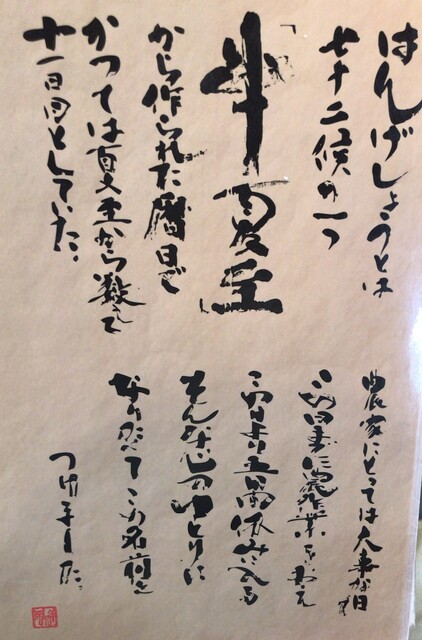 はんげしょうとは
七十二候の一つ
「半夏生」
から作られた暦日で
かつては夏至から数えて
十一日目としていた。
農家にとっては大事な日
この日までに農作業をおえ
この日より五日間休みに入る
そんな心のゆとりに
この名前を
つけました。